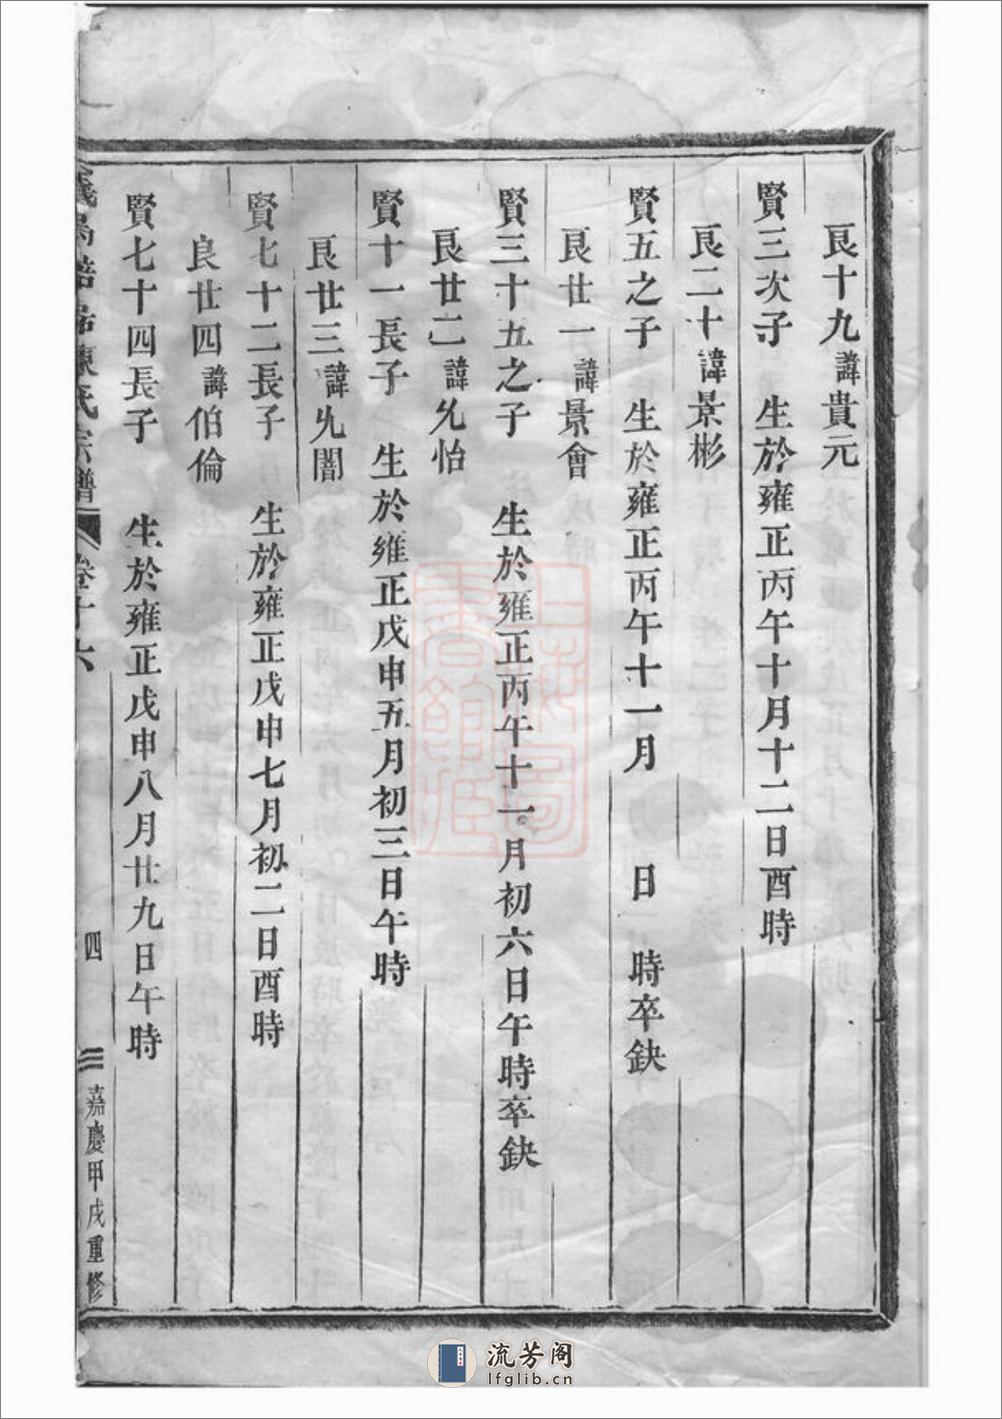 良十九諱貴元
賢三次子 生於雍正丙午十月十二日酉時
良二十諱景彬
賢五之子 生於雍正丙午十一月 日 時卒缺
良廿一諱景會
賢三十五之子 生於雍正丙午十一月初六日午時卒缺
良廿二諱允怡
賢十一長子 生於雍正戊申五月初三日午時
良廿三諱允闇
賢七十二長子 生於雍正戊申七月初二日酉時
良廿四諱伯倫
賢七十四長子 生於雍正戊申八月廿九日午時
陳氏宗譜 卷十六 四 嘉慶甲戌重修
流芳阁
lfglib.cn